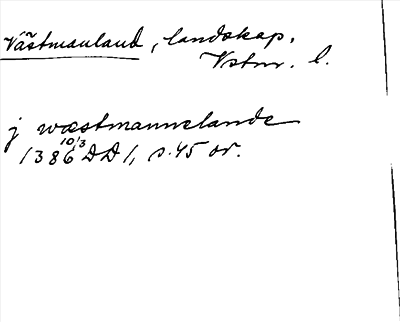 Västmanland, landskap.
Vstm. l.
j wæstmannelande
1386 10/3 DD 1, s. 45 or.